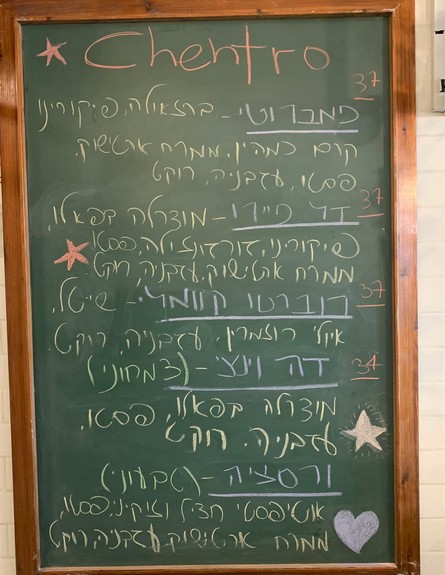 Chentro
37
פמברוטי - ברזאולה, פיקורינו
קרם כמהין, ממרח ארטישוק,
פסטו, עגבניה, רוקט
37
דל פיירו - מוצרלה בפאלו,
פיקורינו, גורגונזולה, פסטו
ממרח ארטישוק, עגבניה, רוקט
37
רוברטו קוומלי - שייטל,
איולי רוזמרין, עגבניה, רוקט
34
דה וינצ׳י - (צמחוני)
מוצרלה בפאלו, פסטו,
עגבניה, רוקט
ורסציה - (טבעוני)
אנטיפסטי חציל וזוקיני, פסטו,
ממרח ארטישוק, עגבניה, רוקט